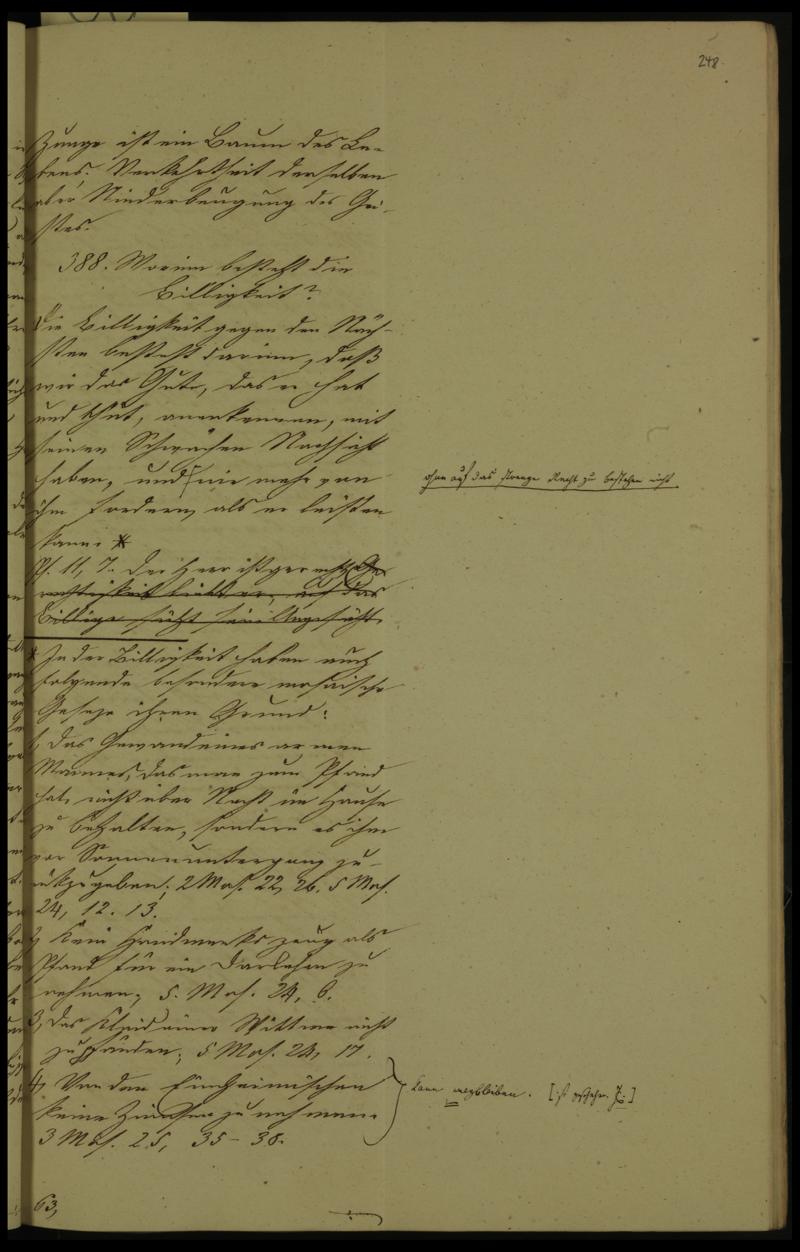 248
Zunge ist ein Baum des Le-
bens. Verkehrtheit derselben
aber Niederbeugung des Gei-
stes.
388. Worinn besteht die
Billigkeit?
Die Billigkeit gegen den Näch-
sten besteht darinn, daß
wir das Gute, das er hat
und thut, anerkennen, mit
seinen Schwächen Nachsicht
haben, und nie mehr von
ohne auf das strenge Recht zu bestehen nicht
ihm fordern, als er leisten
kann. *
Ps. 11, 7. Der Herr ist gerecht, Ge-
rechtigkeit liebt er, auf das
Billige sieht sein Angesicht.
* In der Billigkeit haben auch
folgende besondere mosaische
Geseze ihren Grund:
1, Das Gewand eines armen
Mannes, das man zum Pfand
hat, nicht über Nacht im Hause
zu behalten, sondern es ihm
vor Sonnenuntergang zu-
rükzugeben; 2 Mos. 22, 26. 5 Mos.
24, 12. 13.
2, Kein Handwerkszeug als
Pfand für ein Darlehen zu
nehmen; 5. Mos. 24, 6.
3, Das Kleid einer Wittwe nicht
zu pfänden; 5 Mos. 24, 17.
4, Von den Einheimischen
kann wegbleiben. [ist geschehn.]
keine Zinsen zu nehmen.
3 Mos. 25, 35 - 38.
63,